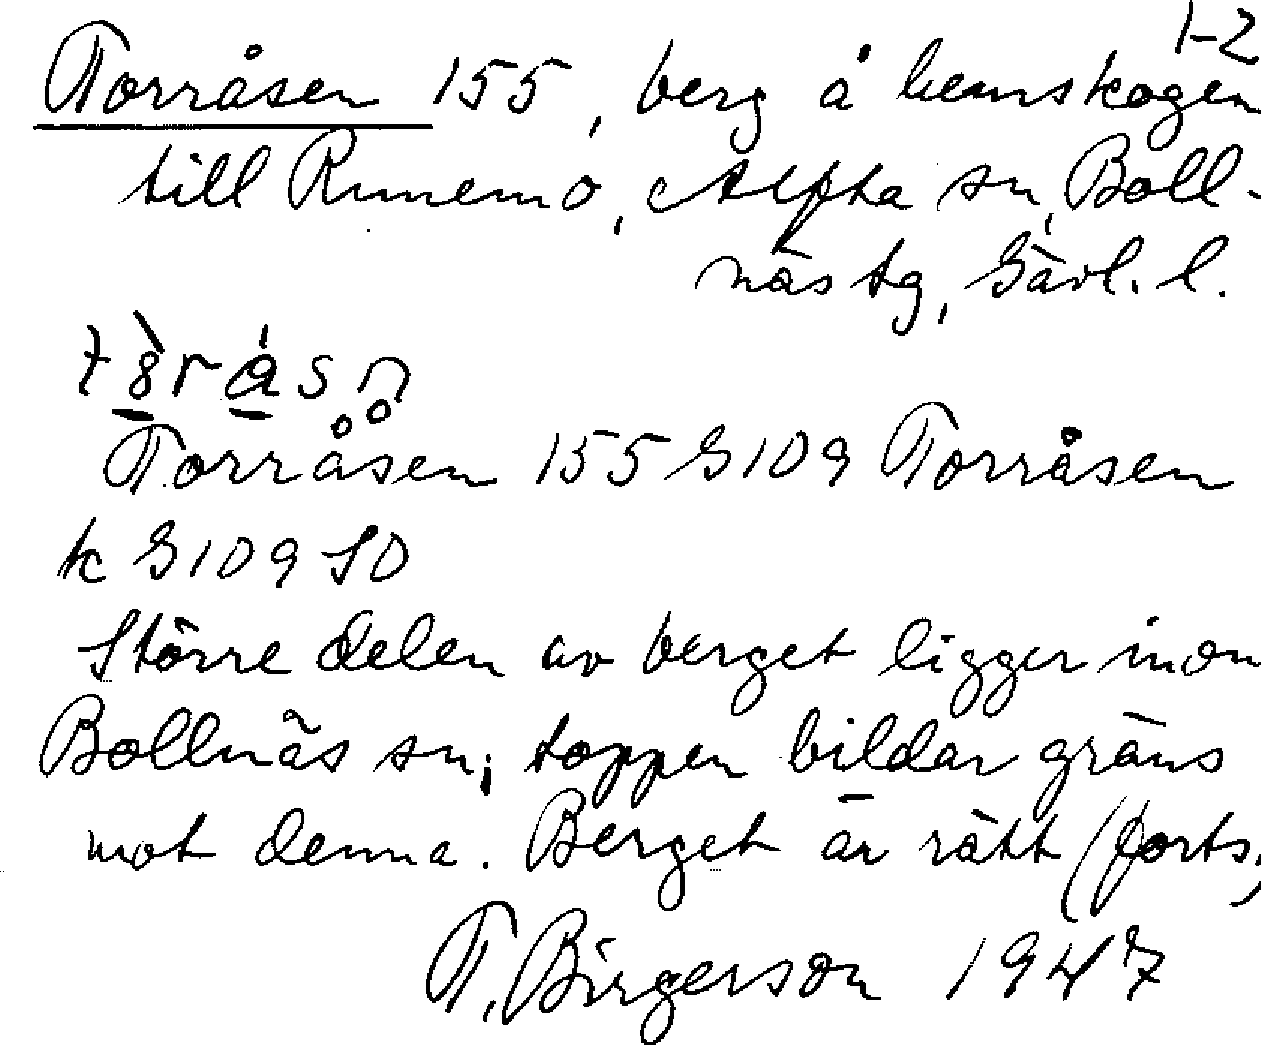 1-2
Torråsen 155, berg å hemskogen
till Runemo, Alfta sn, Boll-
näs tg, Gävl. l.
Torråsen 155 G109 Torråsen
k G109 SO
Större delen av berget ligger inom
Bollnäs sn; toppen bildar gräns
mot denna. Berget är rätt (forts,
T. Birgerson 1947